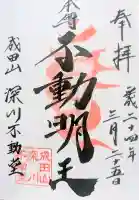 奉拝
平成二十四年
三月二十五日
本尊
不動明王
成田山
深川不動堂
成田山
深川